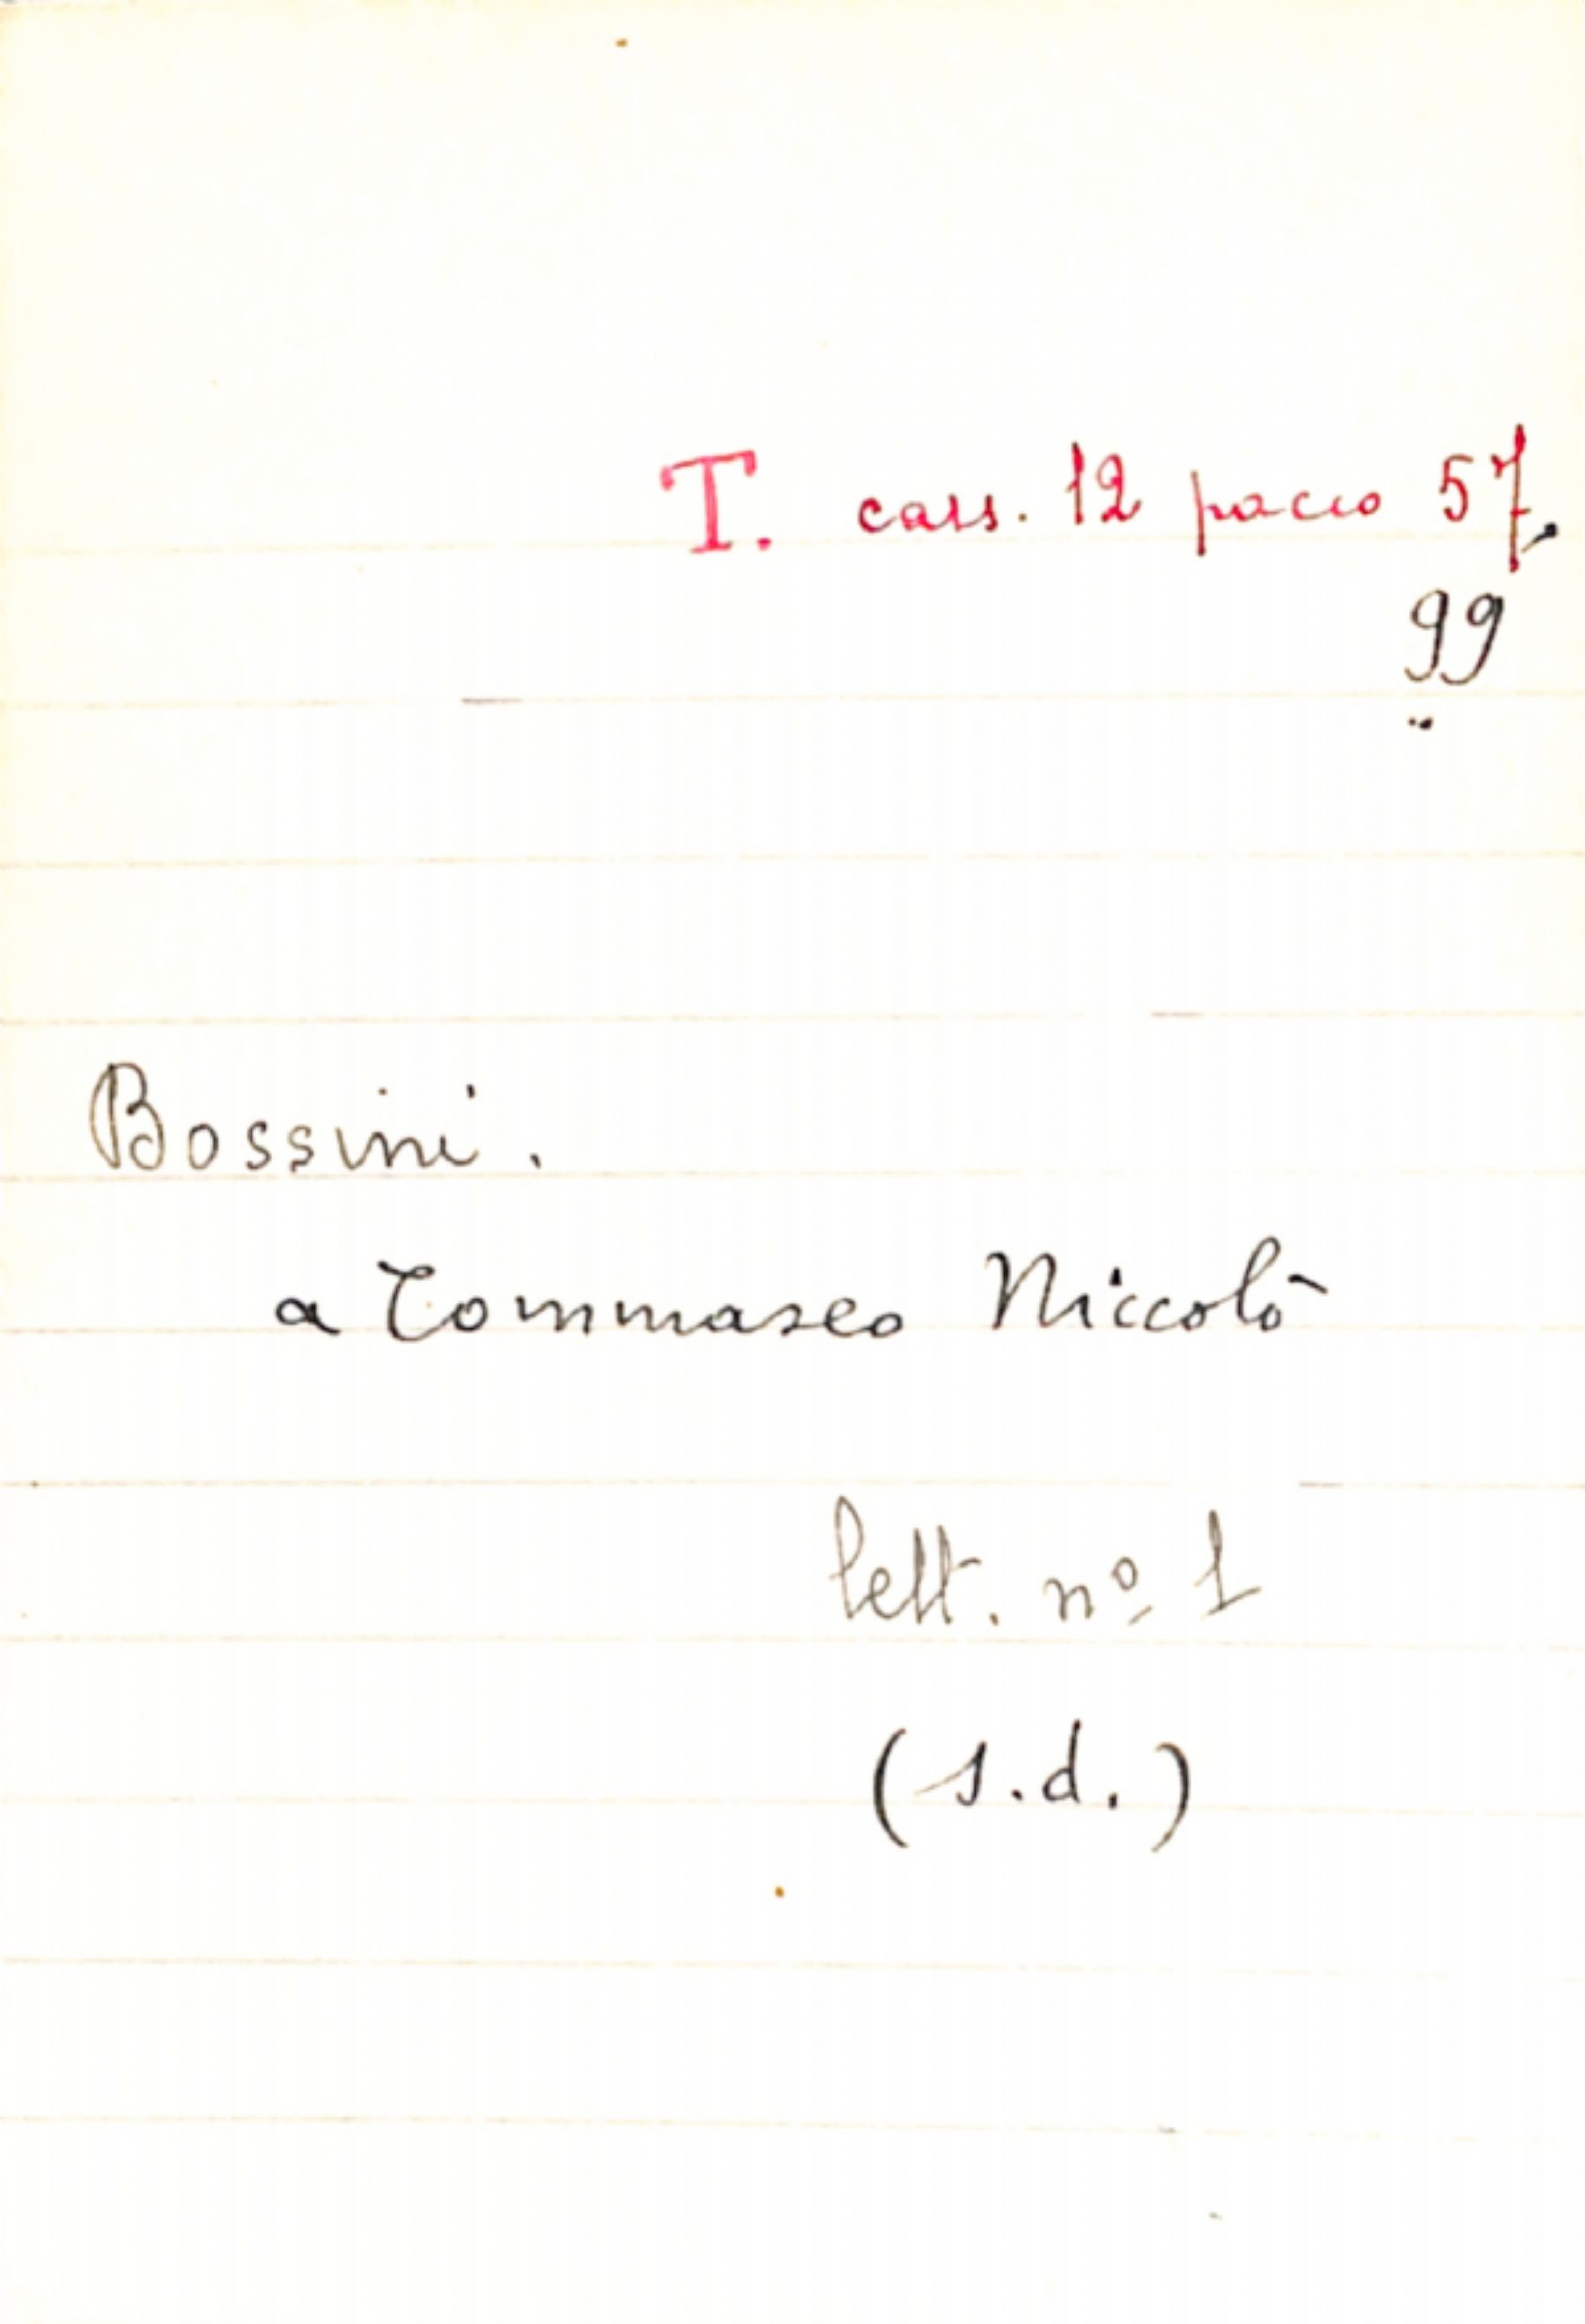 T. cass. 12 pacco 57,
99
Bossini.
a Tommaseo Niccolò
lett. nº 1
(s.d.)